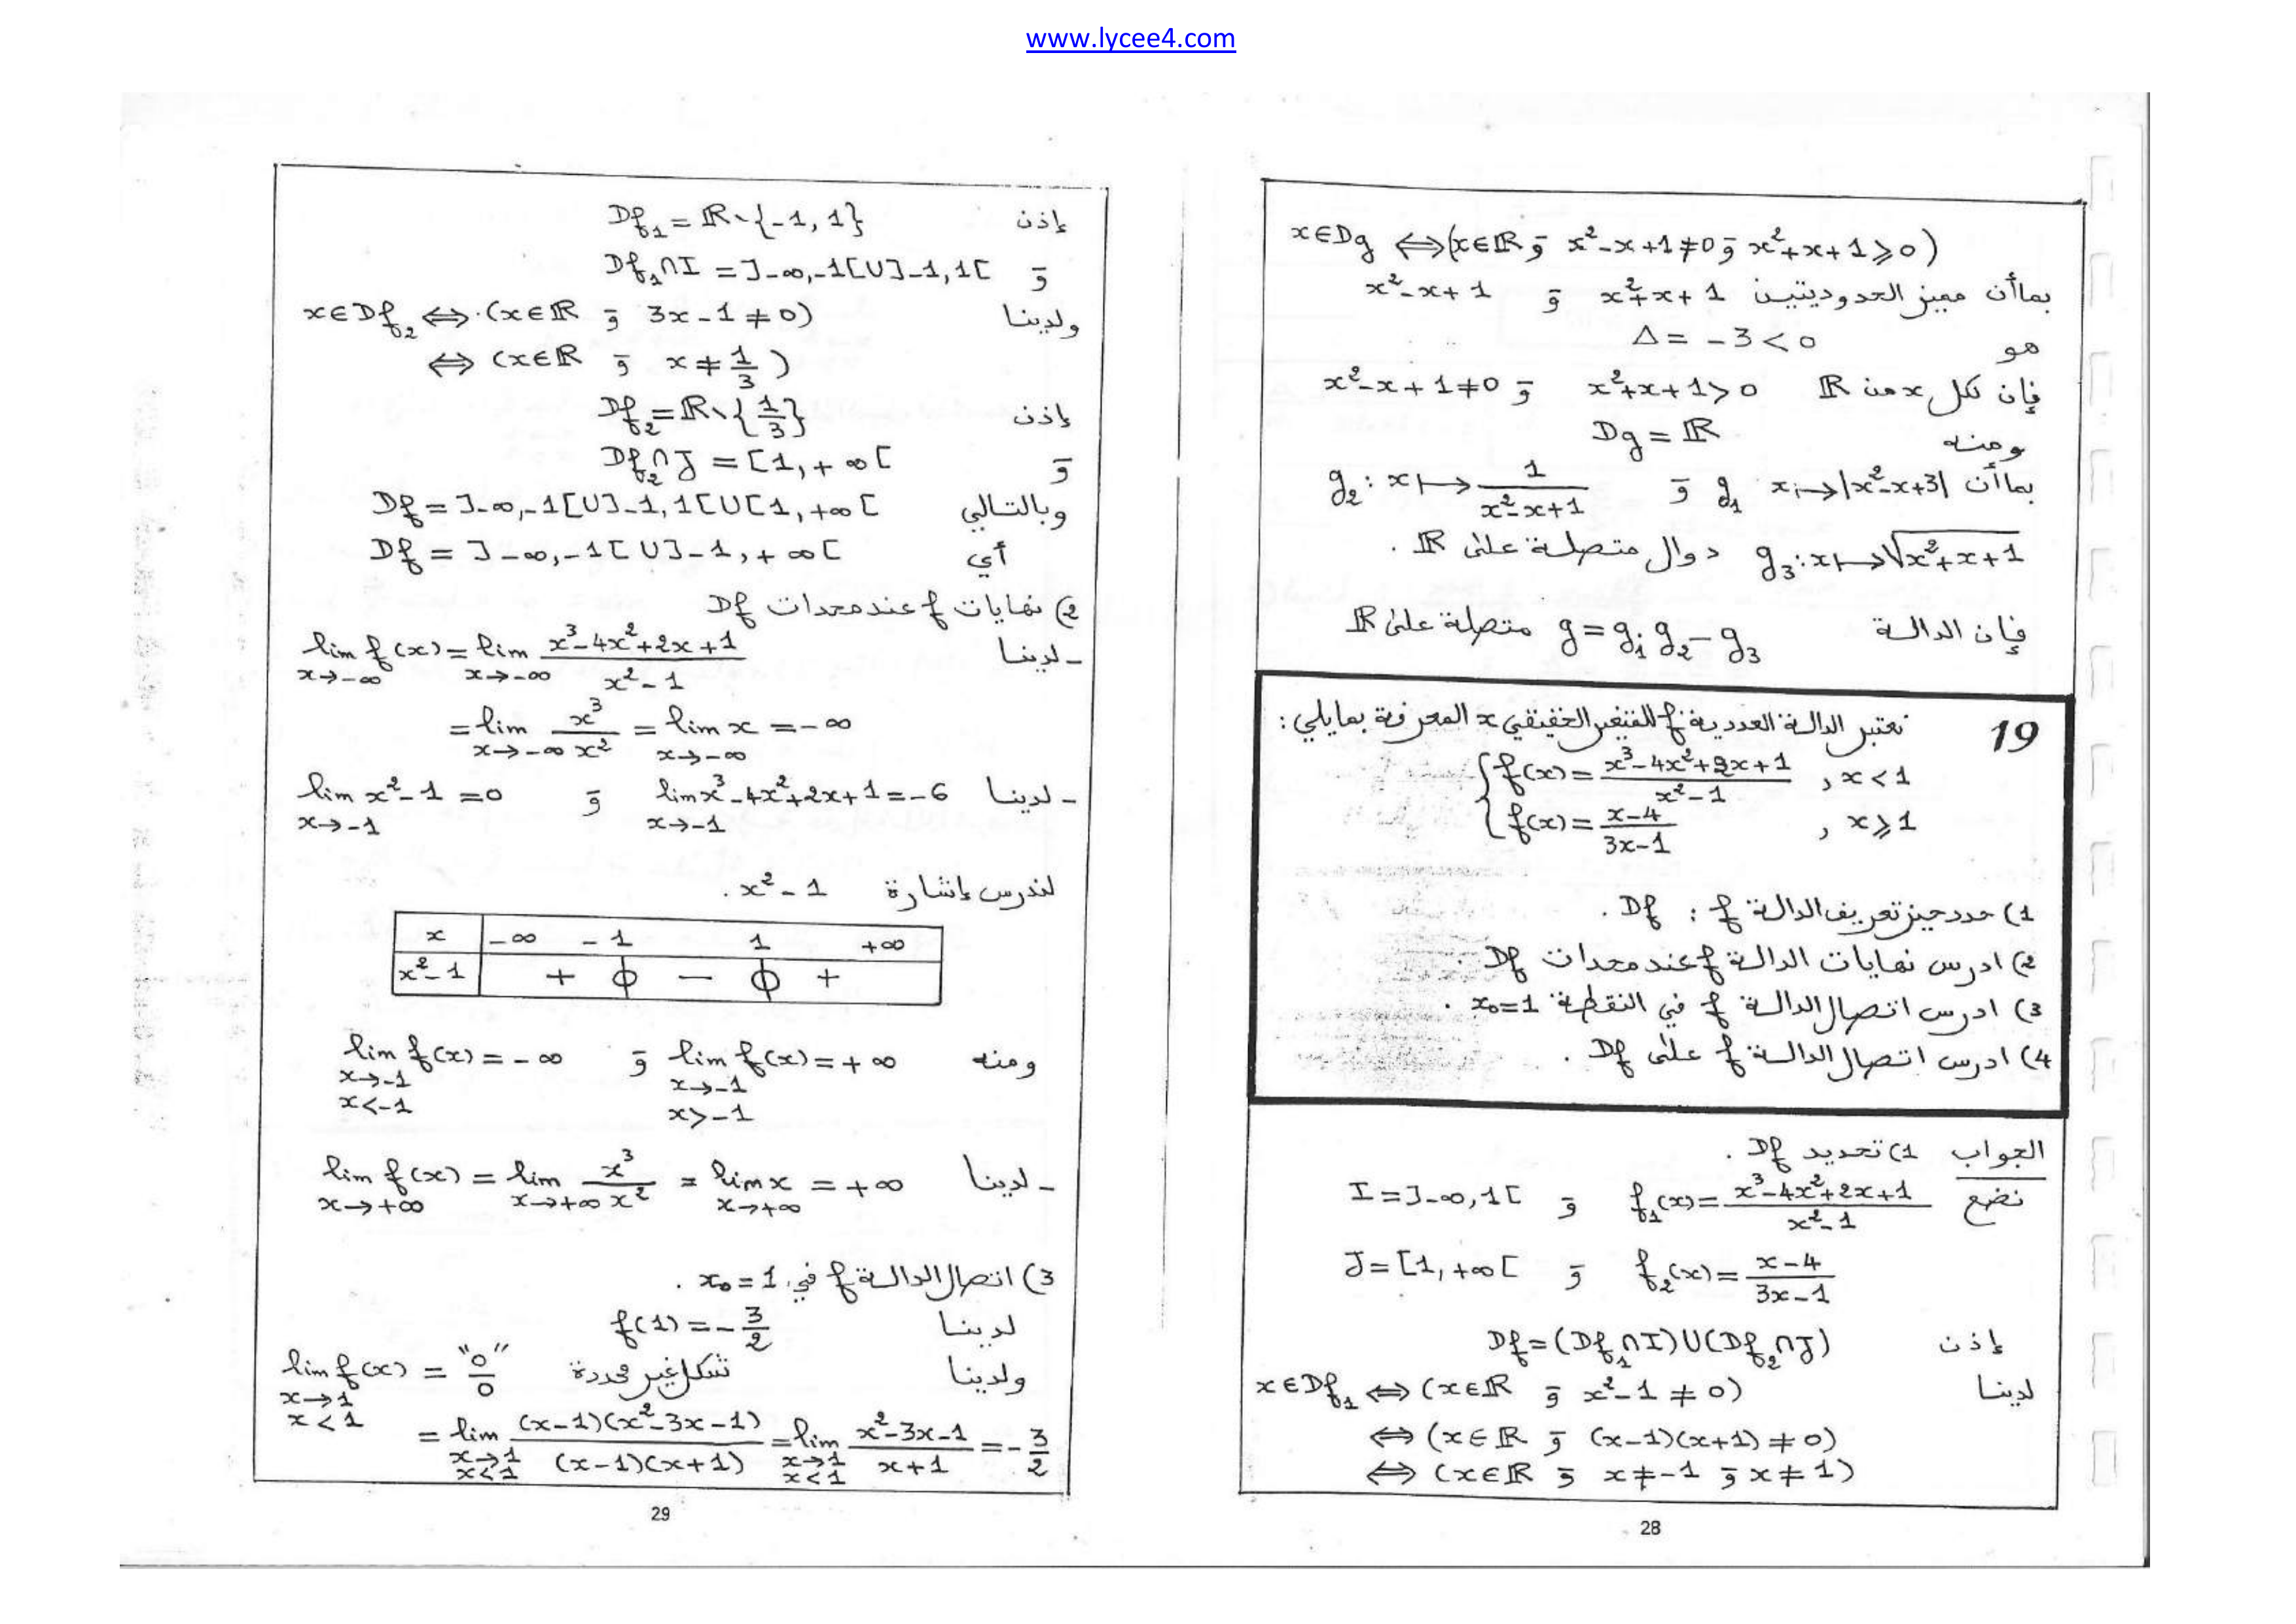 www.lycee4.com
x∈Dg ⟺ (x∈ℝ و x²-x+1≠0 و x²+x+1⩾0)
بما أن مميز الحدوديتين x²+x+1 و x²-x+1
هو Δ = -3 < 0
فإن لكل x من ℝ x²+x+1>0 و x²-x+1≠0
ومنه Dg = ℝ
بما أن g₁ x↦|x²-x+3| و g₂: x↦ 1/(x²-x+1)
g₃: x↦√(x²+x+1) دوال متصلة على ℝ .
فإن الدالة g = g₁g₂ - g₃ متصلة على ℝ
19 نعتبر الدالة العددية f للمتغير الحقيقي x المعرفة بمايلي :
{ f(x) = (x³-4x²+2x+1)/(x²-1) , x<1
{ f(x) = (x-4)/(3x-1) , x⩾1
1) حدد حيز تعريف الدالة f : Df .
2) ادرس نهايات الدالة f عند محدات Df .
3) ادرس اتصال الدالة f في النقطة x₀=1 .
4) ادرس اتصال الدالة f على Df .
الجواب 1) تحديد Df .
نضع f₁(x) = (x³-4x²+2x+1)/(x²-1) و I=]-∞,1[
f₂(x) = (x-4)/(3x-1) و J=[1,+∞[
إذن Df=(Df₁∩I)∪(Df₂∩J)
لدينا x∈Df₁ ⟺ (x∈ℝ و x²-1≠0)
⟺ (x∈ℝ و (x-1)(x+1)≠0)
⟺ (x∈ℝ و x≠-1 و x≠1)
28
إذن Df₁ = ℝ∖{-1, 1}
و Df₁∩I = ]-∞,-1[∪]-1,1[
ولدينا x∈Df₂ ⟺ (x∈ℝ و 3x-1≠0)
⟺ (x∈ℝ و x≠1/3)
إذن Df₂=ℝ∖{1/3}
و Df₂∩J = [1,+∞[
وبالتالي Df = ]-∞,-1[∪]-1,1[∪[1,+∞[
أي Df = ]-∞,-1[∪]-1,+∞[
2) نهايات f عند محدات Df
- لدينا lim f(x) = lim (x³-4x²+2x+1)/(x²-1)
x→-∞ x→-∞
= lim x³/x² = lim x = -∞
x→-∞ x→-∞
- لدينا lim x³-4x²+2x+1 = -6 و lim x²-1 = 0
x→-1 x→-1
لندرس إشارة x²-1 .
x -∞ -1 1 +∞
x²-1 + 0 - 0 +
ومنه lim f(x) = +∞ و lim f(x) = -∞
x→-1 x→-1
x>-1 x<-1
- لدينا lim f(x) = lim x³/x² = lim x = +∞
x→+∞ x→+∞ x→+∞
3) اتصال الدالة f في x₀=1 .
لدينا f(1) = -3/2
ولدينا lim f(x) = "0"/0 شكل غير محددة
x→1
x<1
= lim (x-1)(x²-3x-1)/(x-1)(x+1) = lim (x²-3x-1)/(x+1) = -3/2
x→1 x→1
x<1 x<1
29